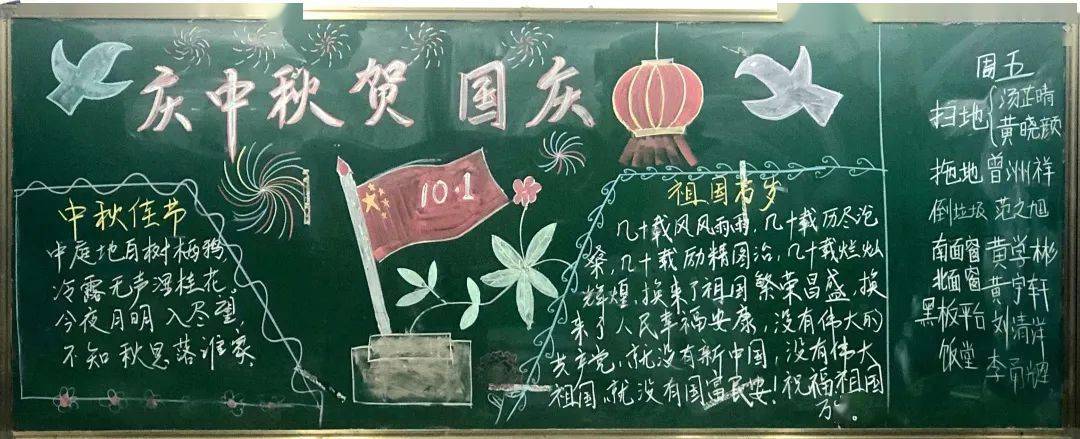 庆中秋贺 国庆
10·1
中秋佳节
中庭地白树栖鸦
冷露无声湿桂花。
今夜月明人尽望
不知秋思落谁家
祖国万岁
几十载风风雨雨,几十载历尽沧
桑,几十载励精图治,几十载烂灿
辉煌,换来了祖国繁荣昌盛,换
来了人民幸福安康,没有伟大的
共产党,就没有新中国,没有伟大
祖国,就没有国富民安!祝福祖国
万
周五
扫地 汤芷晴
黄晓颜
拖地 曾洲祥
倒垃圾 范之旭
南面窗 黄学彬
北面窗 黄宇轩
黑板平台 刘清洋
饭堂